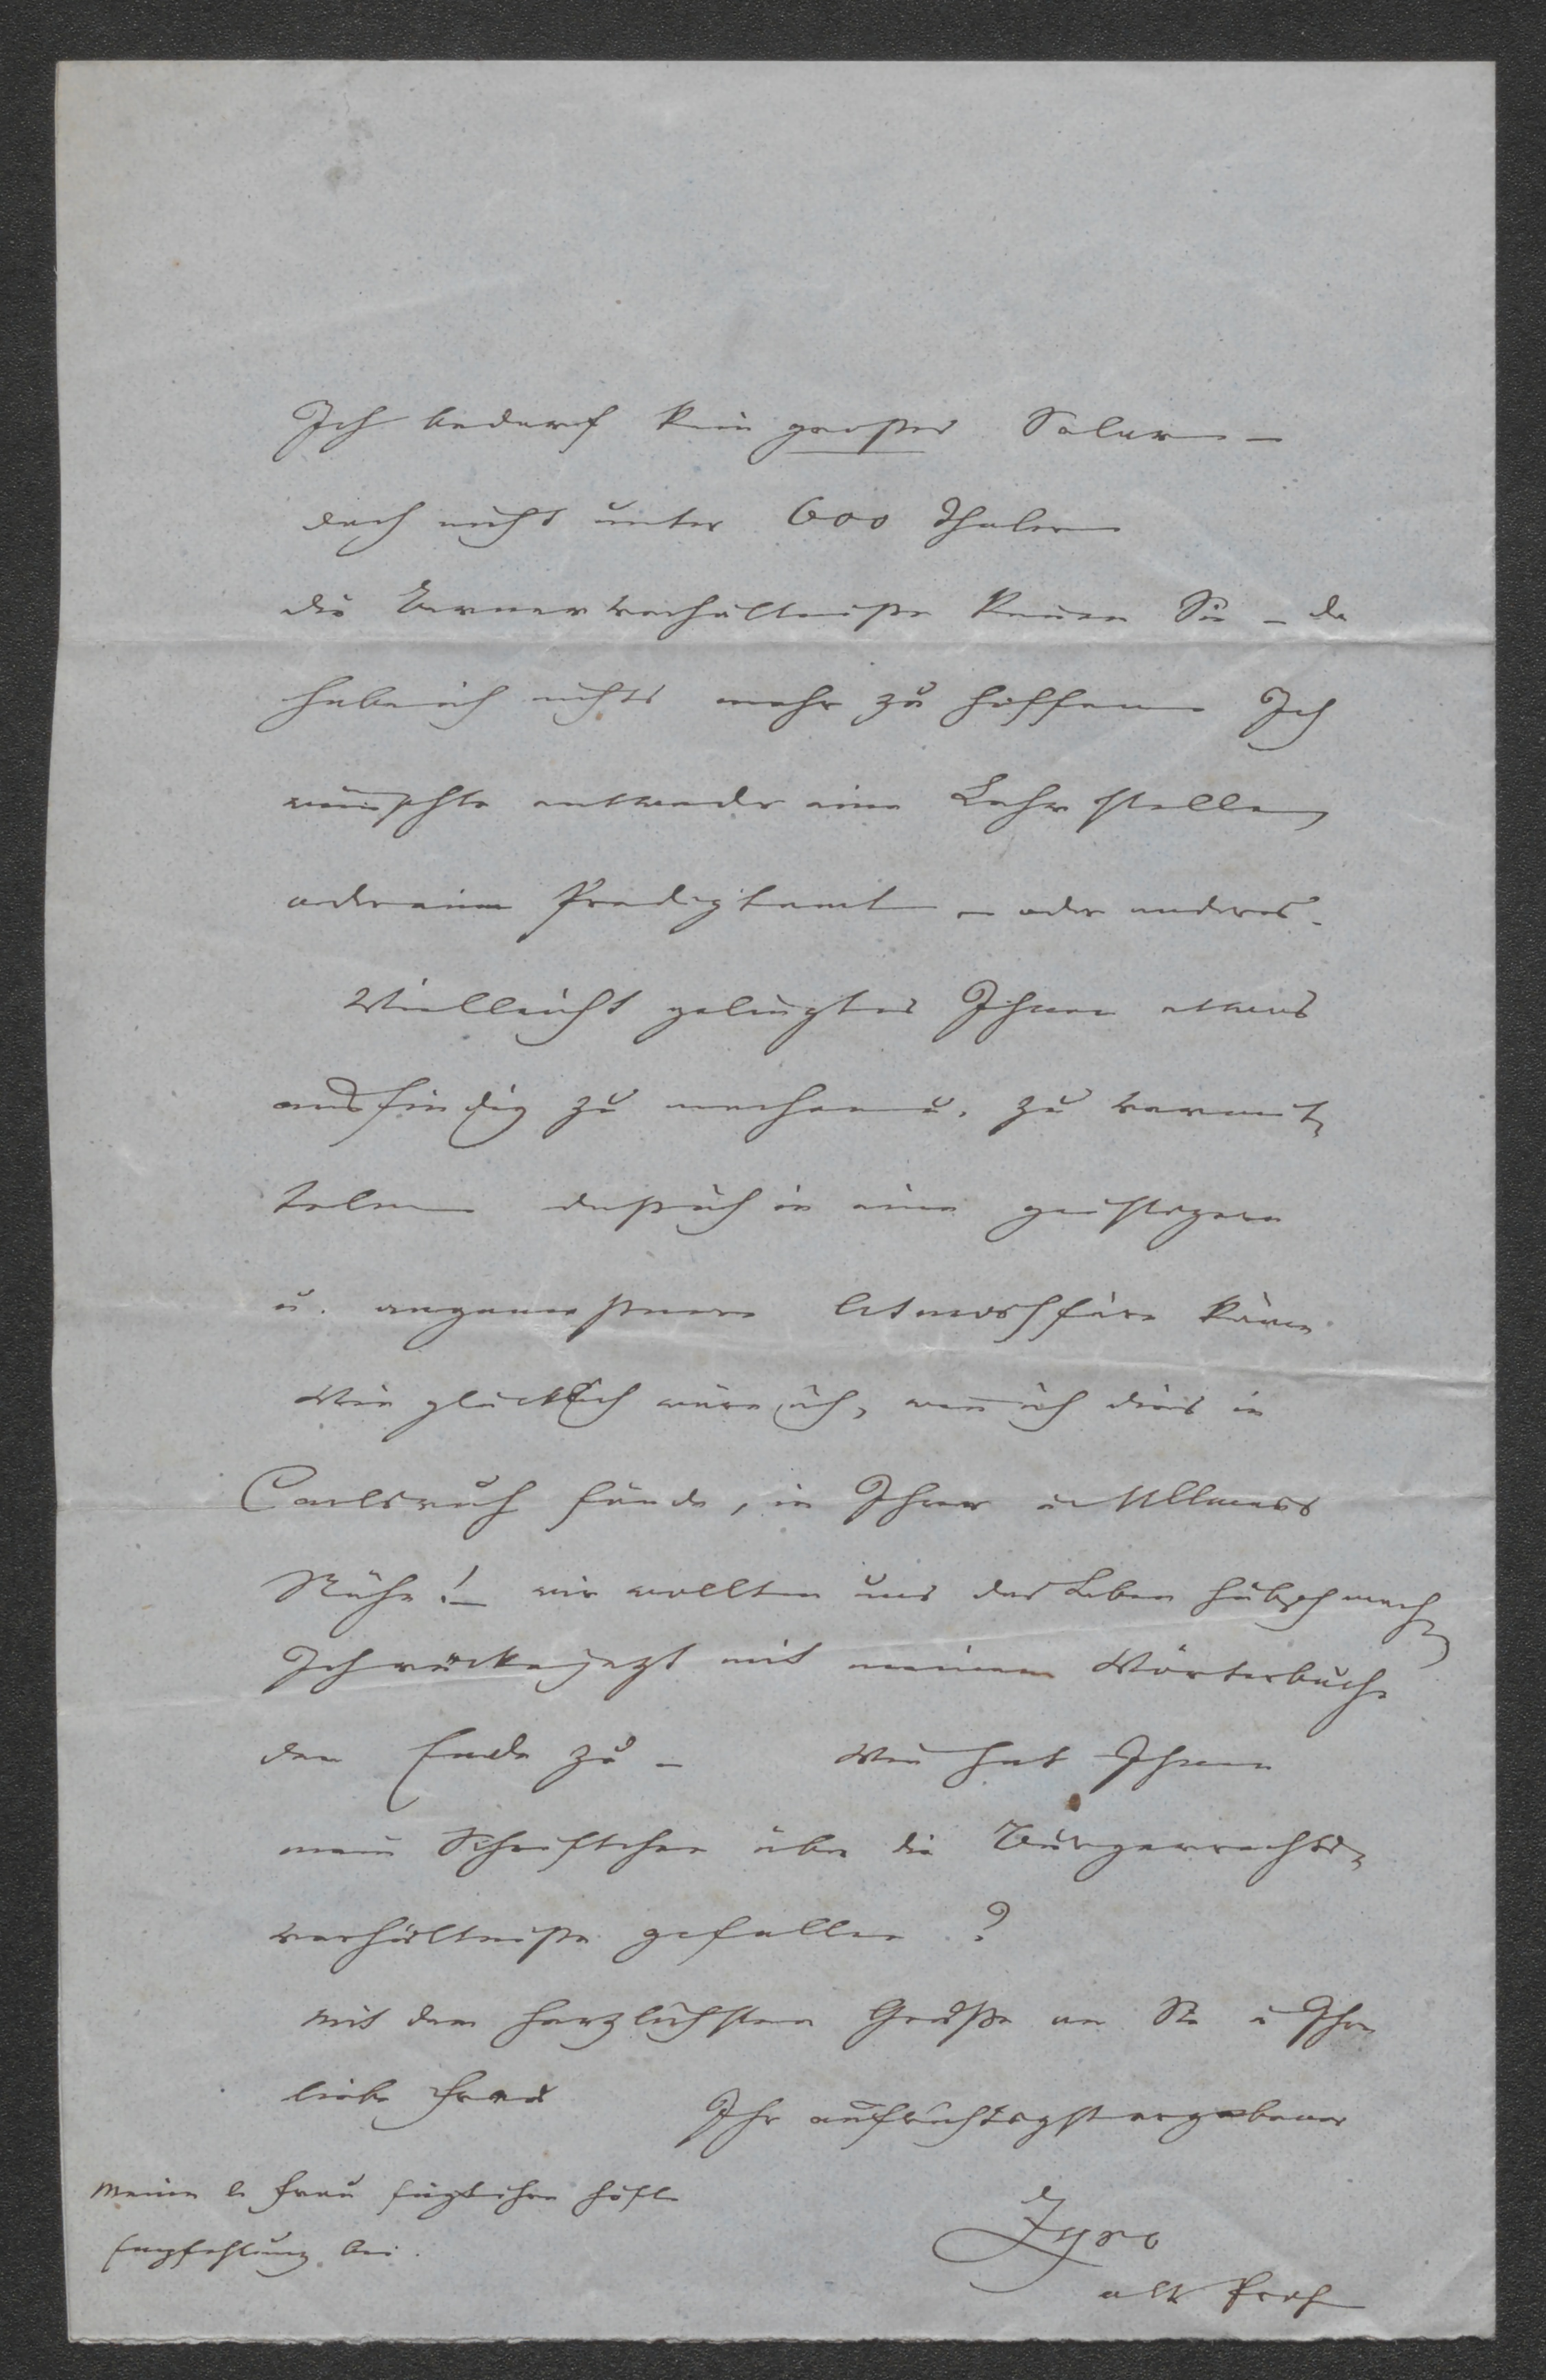 Ich bedarf kein großes Salar –
doch nicht unter 600 Thalern
die Bernerverhältniße kennen Sie – da
habe ich nichts mehr zu hoffen Ich
wünschte entweder eine Lehrstelle,
oder ein Predigtamt – oder anderes.
Vielleicht gelingt es Ihnen etwas
ausfindig zu machen u. zu vermit-
teln daß ich in eine geistigere
u. angemeßnere Atmosphäre käme
Wie glücklich wäre ich, wenn ich dies in
Carlsruh fände, in Ihrer u Ullmans
Nähe! – wir wollten uns das Leben hübsch machen
Ich rücke jezt mit meinem Wörterbuche
dem Ende zu – Wie hat Ihnen
mein Schriftchen über die Bürgerrechts-
verhältniße gefallen ?
Mit dem herzlichsten Gruße an Sie u Ihre
liebe Frau Ihr aufrichtigst ergebener
Meine l. Frau fügt ihre höfl.
Empfehlung bei.
Zyro
alt Prof